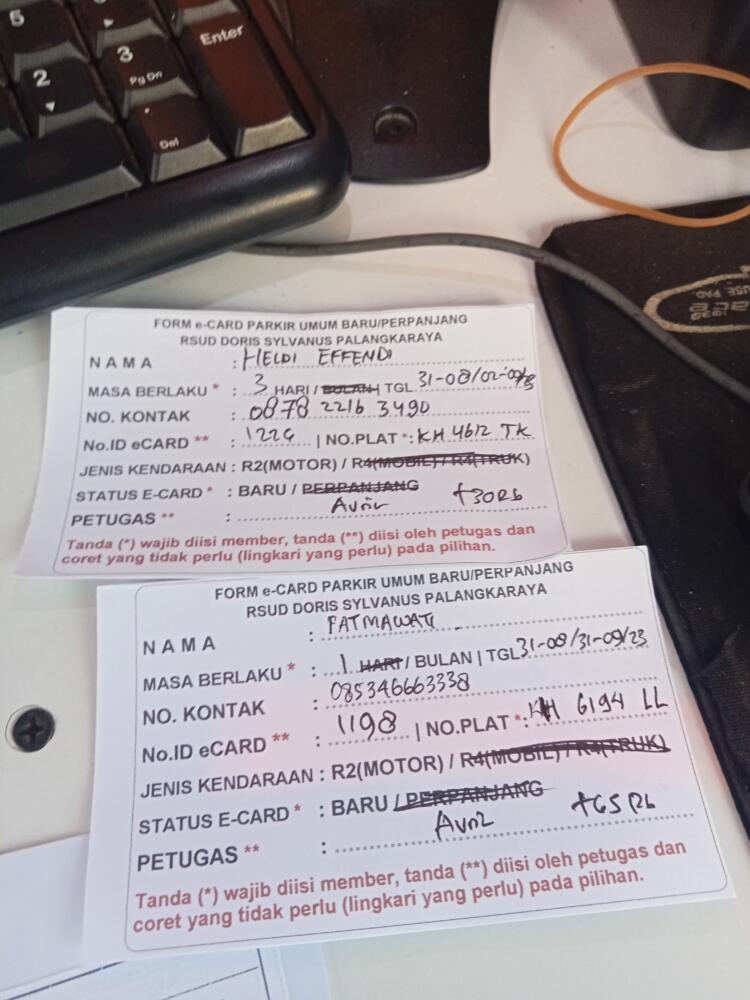 5
Enter
2
3
Pg Dn
Del
FORM e-CARD PARKIR UMUM BARU/PERPANJANG
RSUD DORIS SYLVANUS PALANGKARAYA
NAMA : HELDI EFFENDI
MASA BERLAKU * : 3 HARI / BULAN | TGL 31-08/02-09/23
NO. KONTAK : 0878 2216 3490
No.ID eCARD ** : 1224 | NO.PLAT *: KH 4612 TK
JENIS KENDARAAN : R2(MOTOR) / R4(MOBIL) / R4(TRUK)
STATUS E-CARD * : BARU / PERPANJANG +30Rb
PETUGAS ** : Avriz
Tanda (*) wajib diisi member, tanda (**) diisi oleh petugas dan
coret yang tidak perlu (lingkari yang perlu) pada pilihan.
FORM e-CARD PARKIR UMUM BARU/PERPANJANG
RSUD DORIS SYLVANUS PALANGKARAYA
NAMA : FATMAWATI
MASA BERLAKU * : 1 HARI / BULAN | TGL 31-08/31-09/23
NO. KONTAK : 085346663338
No.ID eCARD ** : 1198 | NO.PLAT *: KH 6194 LL
JENIS KENDARAAN : R2(MOTOR) / R4(MOBIL) / R4(TRUK)
STATUS E-CARD * : BARU / PERPANJANG +65 Rb
PETUGAS ** : Avriz
Tanda (*) wajib diisi member, tanda (**) diisi oleh petugas dan
coret yang tidak perlu (lingkari yang perlu) pada pilihan.